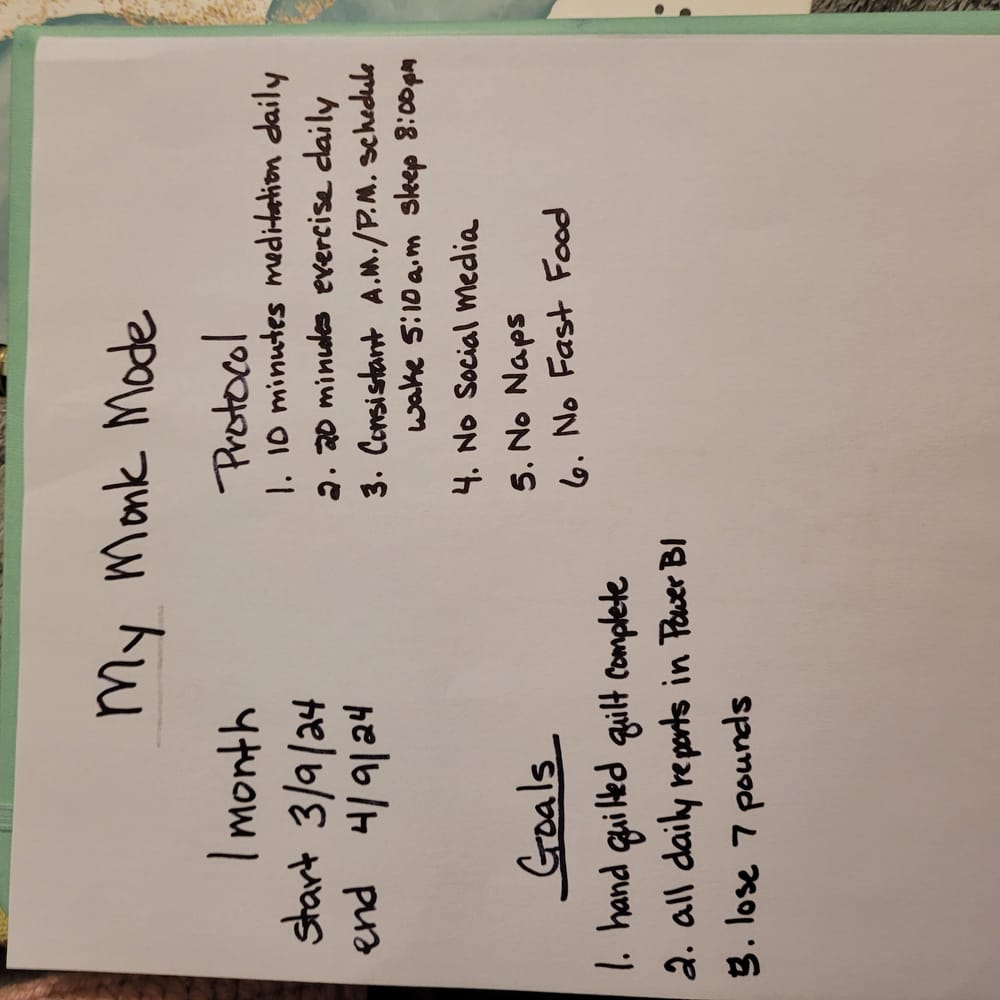 My Monk Mode
1 month
start 3/9/24
end 4/9/24
Protocol
1. 10 minutes meditation daily
2. 20 minutes exercise daily
3. Consistant A.M./P.M. schedule
wake 5:10 a.m sleep 8:00 pm
4. No Social Media
5. No Naps
6. No Fast Food
Goals
1. hand quilted quilt complete
2. all daily reports in Power BI
3. lose 7 pounds